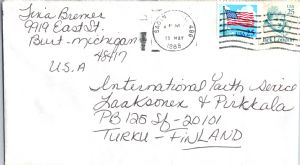 Tina Bremer
9419 East St.
Burt-michigan
48417
U.S.A
PM
13 MAY
1988
486
USA
25
International Youth Service
Laaksonen & Pirkkala
PB 125 Sf-20101
TURKU-FINLAND